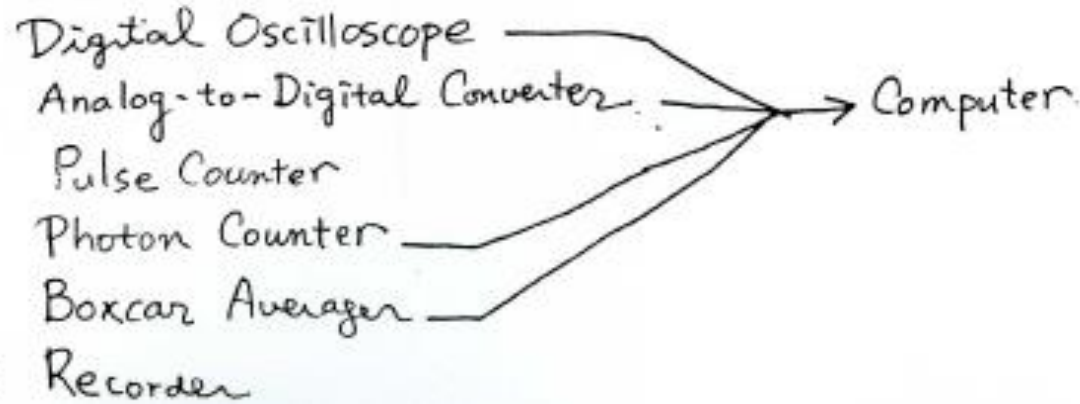 Digital Oscilloscope
Analog-to-Digital Converter
Computer
Pulse Counter
Photon Counter
Boxcar Averager
Recorder